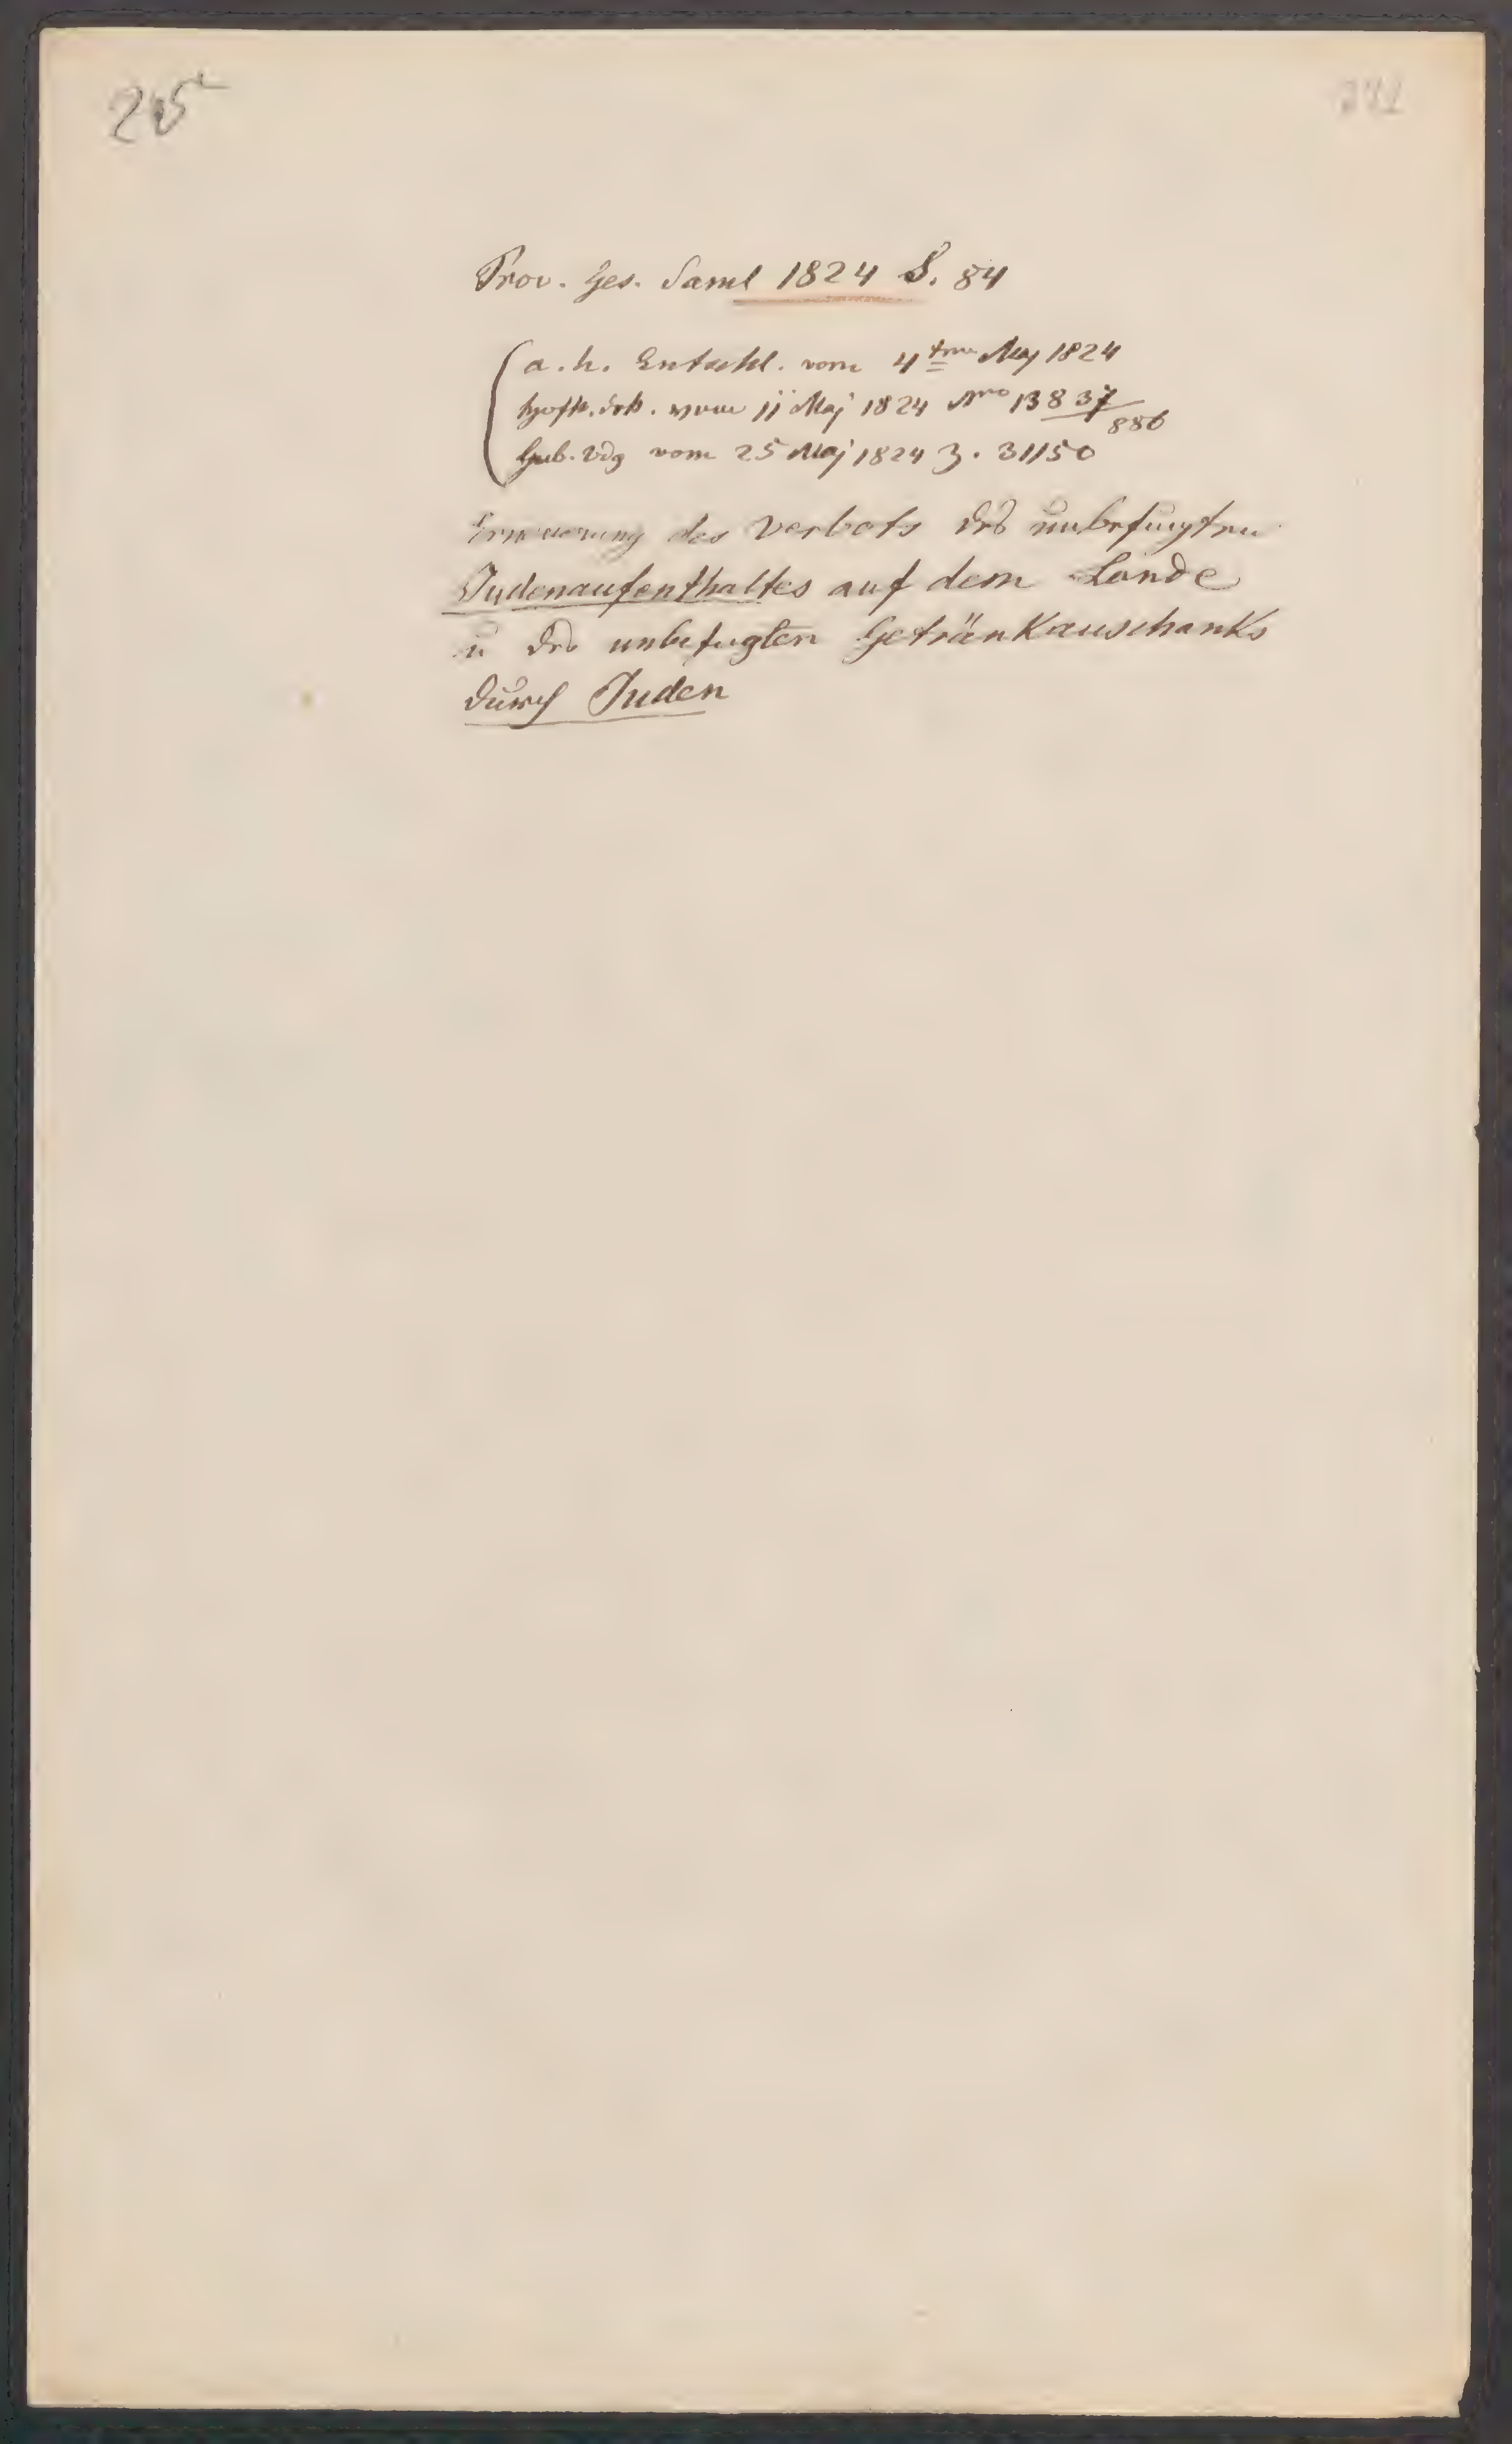 Prov. Ges. Saml 1824 S. 84
a. h. Entschl. vom 4ten Maj 1824
Hofk. Dek. vom 11 Maj 1824 Nro 13837/886
Gub. Vdg vom 25 Maj 1824 Z. 31150
Erneuerung des Verbots des unbefugten
Judenaufenthaltes auf dem Lande
u des unbefugten Getränkauschanks
durch Juden